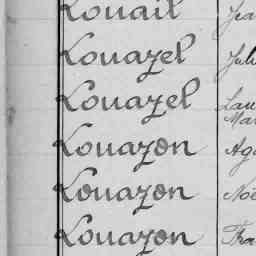 Louail
Louazel
Louazel
Louazon
Louazon
Louazon